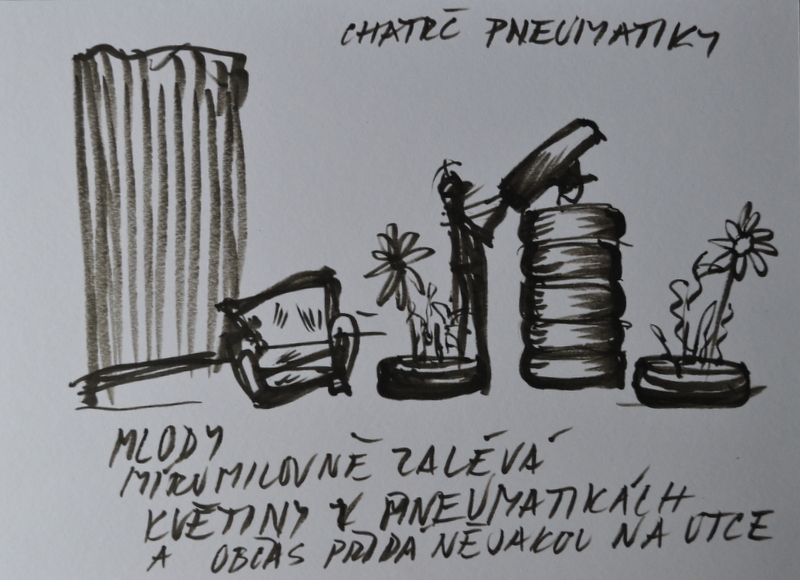 CHATRČ PNEUMATIKY
MLODY
MÍRUMILOVNĚ ZALÉVÁ
KVĚTINY V PNEUMATIKÁCH
A OBČAS PŘIDÁ NĚJAKOU NA OTCE